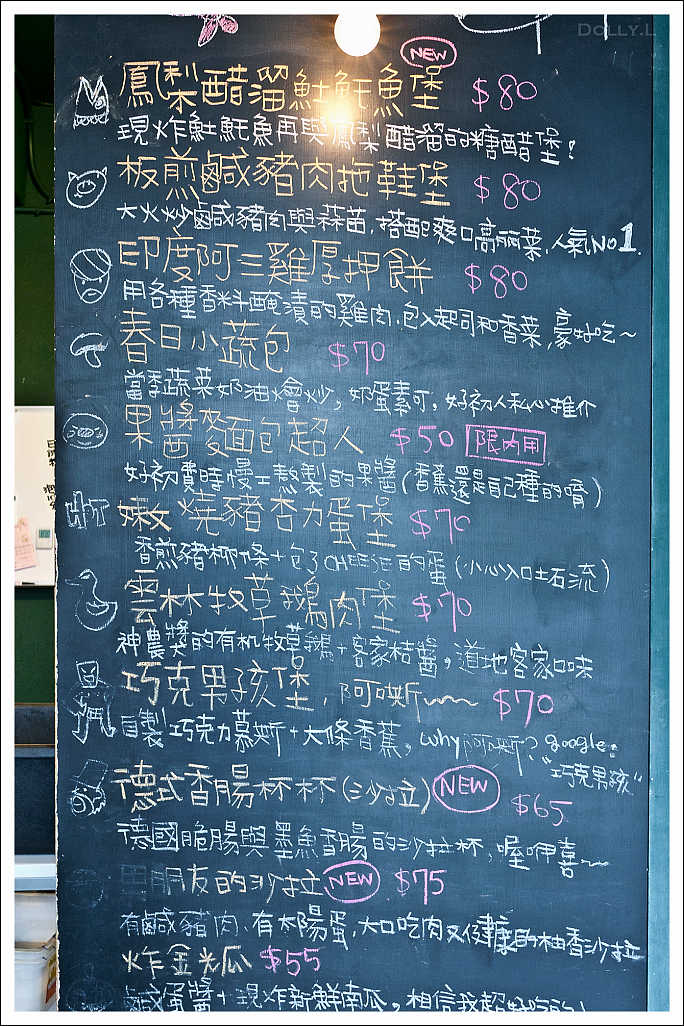 DOLLY.L
NEW
鳳梨醋溜魠魠魚堡 $80
現炸魠魠魚再與鳳梨醋溜的糖醋堡!
板煎鹹豬肉拖鞋堡 $80
大火炒鹹豬肉與蒜苗,搭配爽口高麗菜,人氣NO1.
印度阿三雞厚押餅 $80
用各種香料醃漬的雞肉.包入起司和香菜,豪好吃~
春日小蔬包 $70
當季蔬菜奶油燴炒,奶蛋素可,好初人私心推介
果醬麥面包超人 $50 限內用
好初費時慢工熬製的果醬(香蕉還是自己種的唷)
嫩燒豬杏力蛋堡 $70
香煎豬柳條+包了CHEESE的蛋(小心入口土石流)
雲林牧草鵝肉堡 $70
神農獎的有机牧草鵝+客家桔醬,道地客家口味
巧克男孩堡,阿嘶~~ $70
自製巧克力慕斯+大條香蕉,why阿嘶?google:
"巧克男孩"
德式香腸杯杯(沙拉) NEW $65
德國脆腸與墨魚香腸的沙拉杯,喔咿喜~
男朋友的沙拉 NEW $75
有鹹豬肉、有太陽蛋,大口吃肉又健康的柚香沙拉
炸金光瓜 $55
鹹蛋醬+現炸新鮮南瓜,相信我超好吃的!